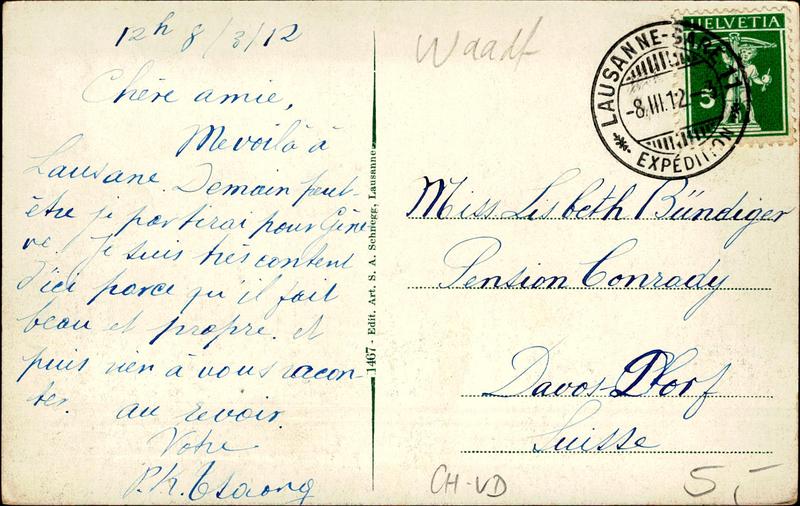 12h 8/3/12
Chère amie,
Me voilà à
Lausane. Demain peut-
être je partirai pour Génè
ve. Je suis très content
d'ici parce qu'il fait
beau et propre. et
puis rien à vous racon-
ter. au revoir.
Votre
P.K.
1467 - Edit. Art. S. A. Schnegg, Lausanne
Waadt
HELVETIA
5
LAUSANNE-
-8.III.12.-
EXPÉDITION
Miss Lisbeth Bündiger
Pension Conrady
Davos-Dorf
Suisse
CH-VD
5,-